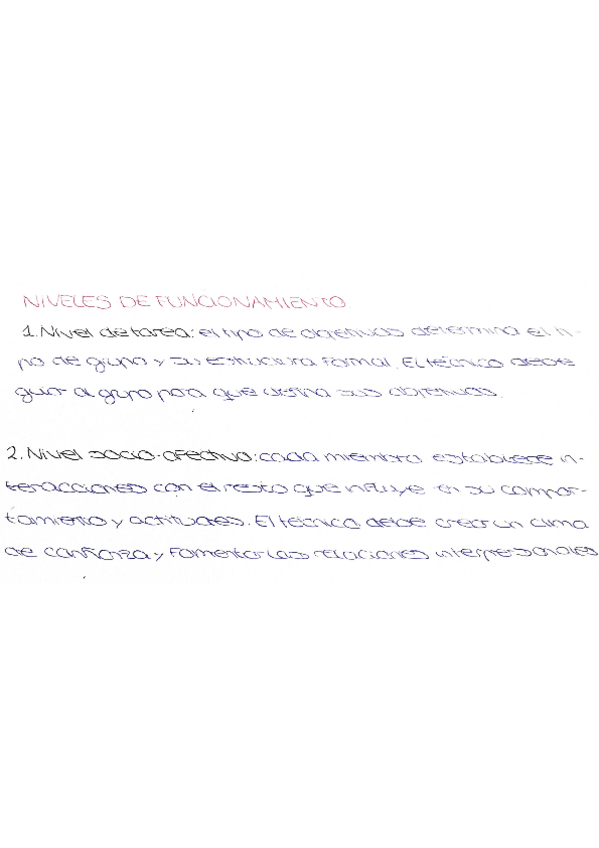 NIVELES DE FUNCIONAMIENTO
1. Nivel de tarea: el tipo de objetivos determina el ti-
po de grupo y su estructura formal. El técnico debe
guiar al grupo para que defina sus objetivos.
2. Nivel socio-afectivo: cada miembro establece in-
teracciones con el resto que influye en su compor-
tamiento y actitudes. El técnico debe crear un clima
de confianza y fomentar las relaciones interpersonales